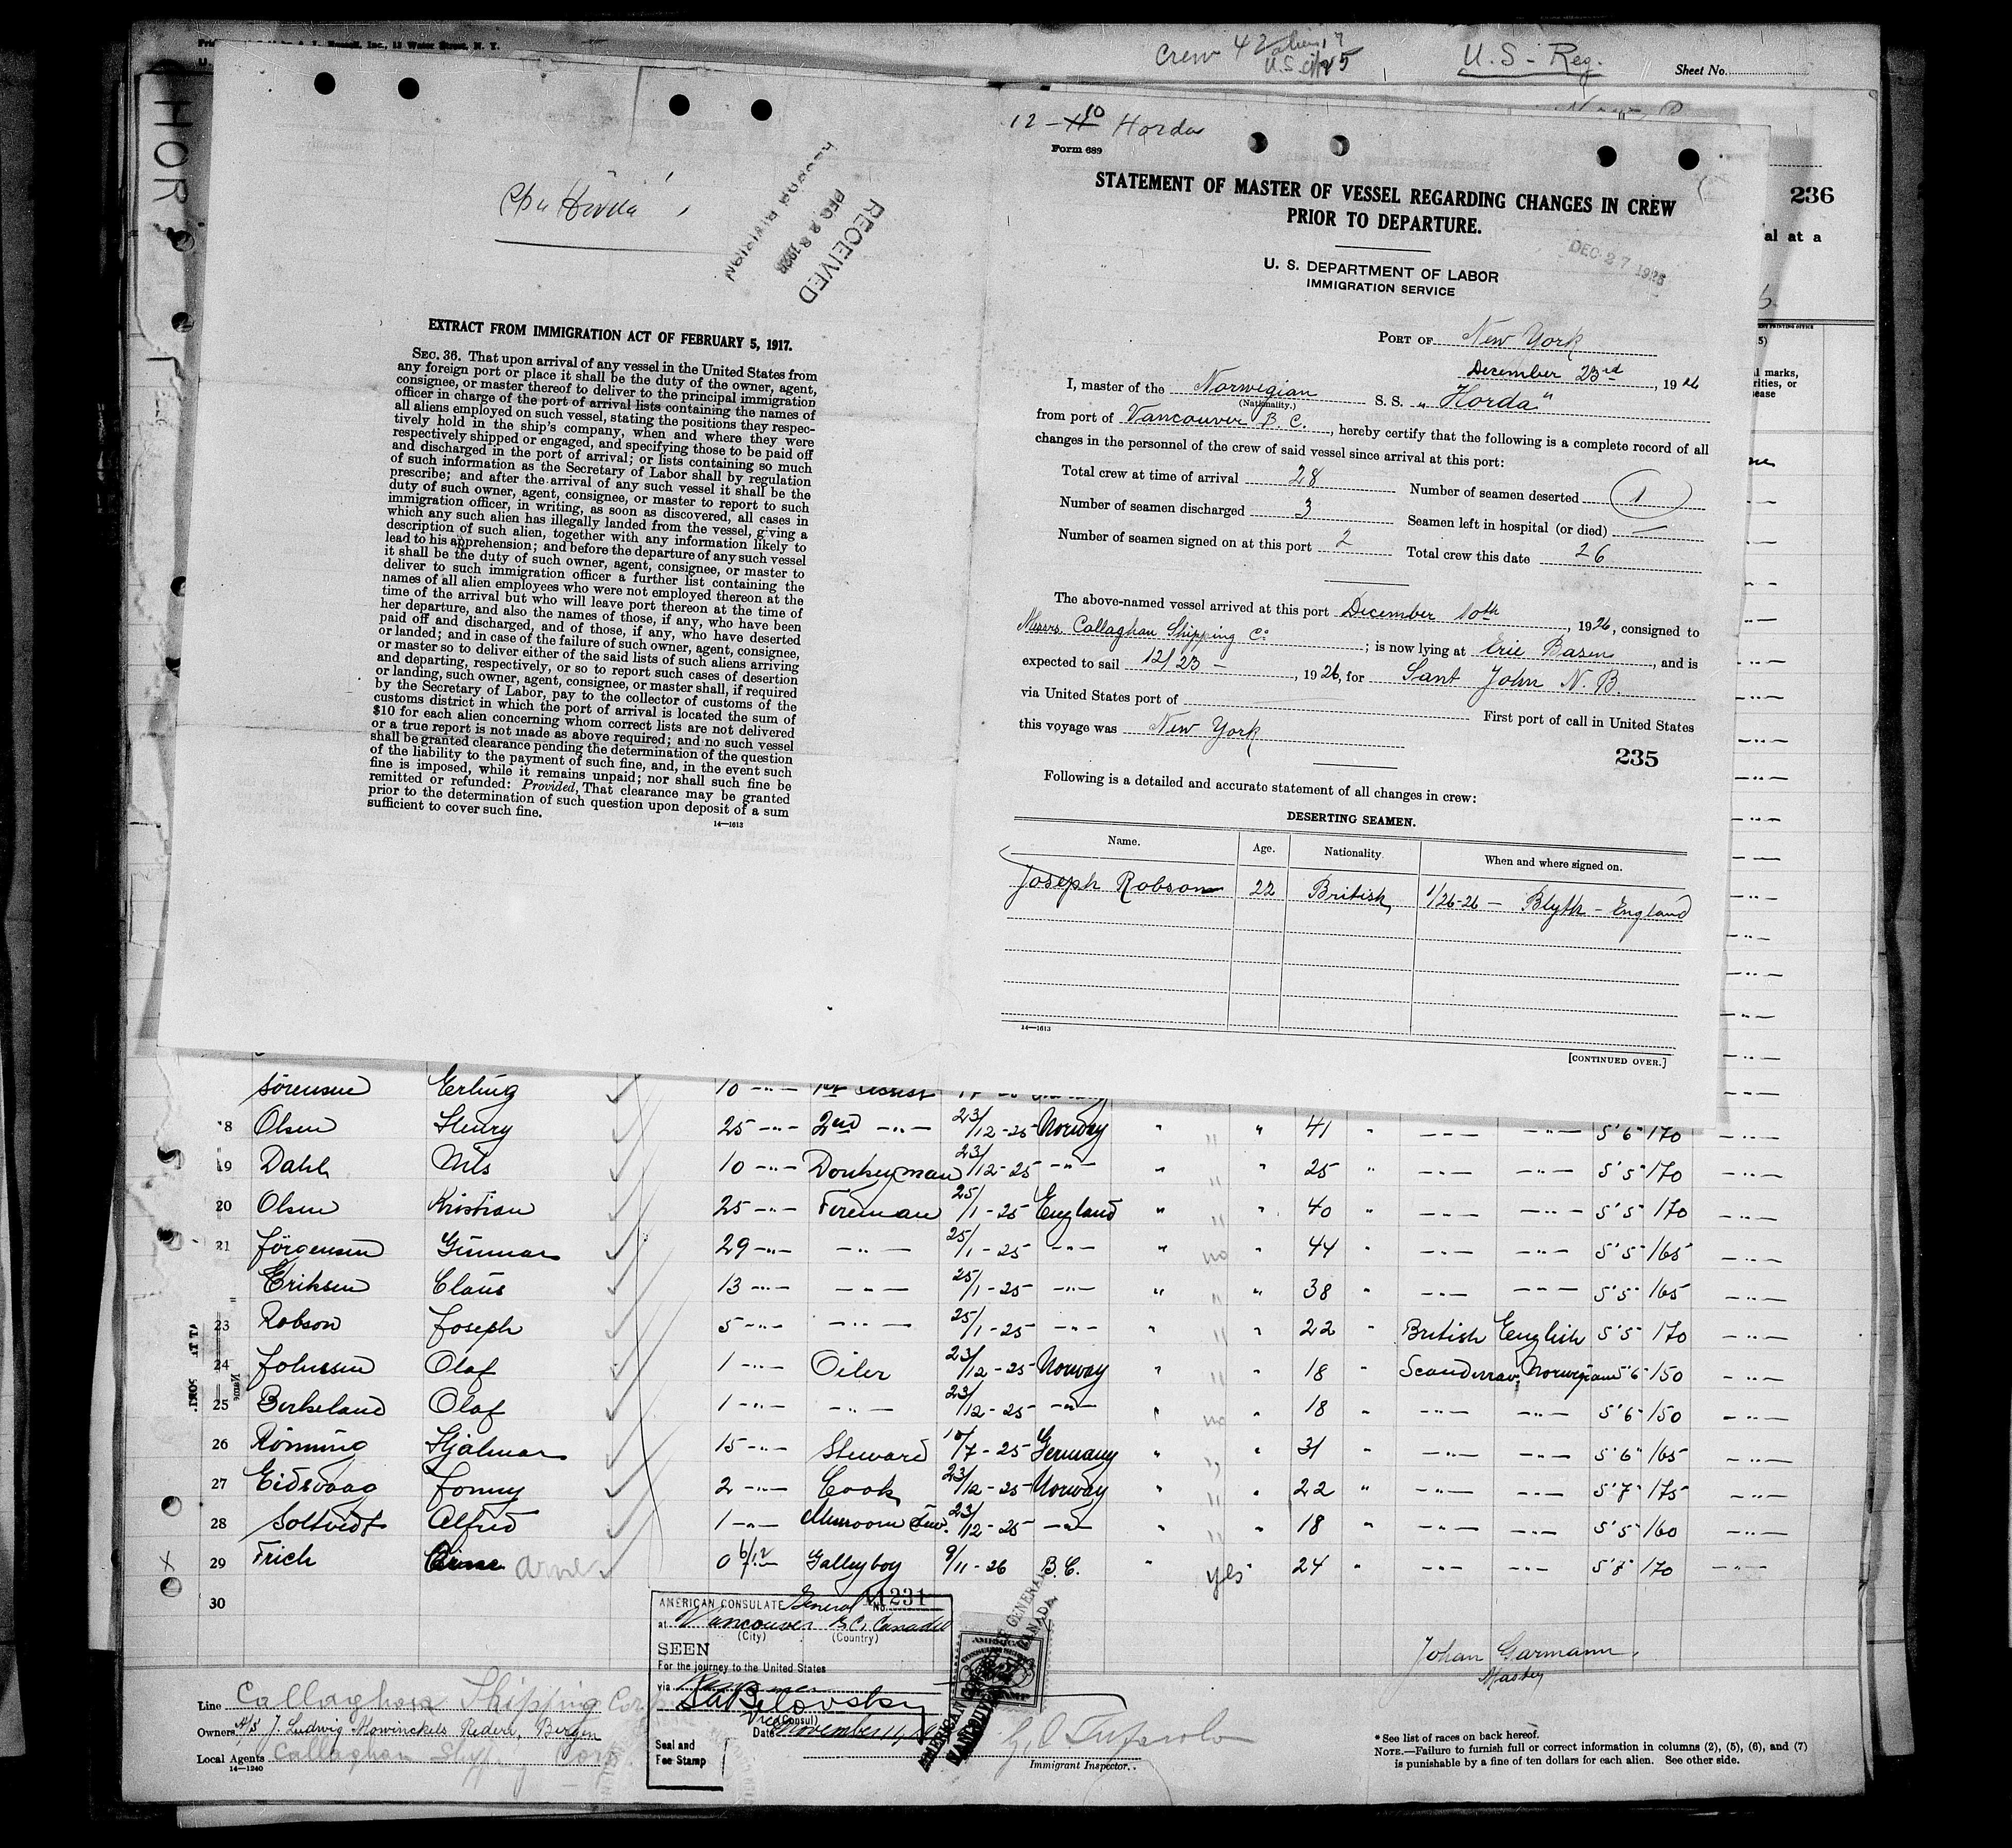 Crew 42 alien 17
U.S. Reg.
Sheet No.
HOR
12 - 10 Horda
Form 689
STATEMENT OF MASTER OF VESSEL REGARDING CHANGES IN CREW
PRIOR TO DEPARTURE.
236
al at a
DEC 27 1926
U. S. DEPARTMENT OF LABOR
IMMIGRATION SERVICE
PORT OF New York
December 23rd, 1926
I, master of the Norwegian S. S. " Horda "
(Nationality.)
from port of Vancouver B. C., hereby certify that the following is a complete record of all
changes in the personnel of the crew of said vessel since arrival at this port:
Total crew at time of arrival 28 Number of seamen deserted 1
Number of seamen discharged 3 Seamen left in hospital (or died) —
Number of seamen signed on at this port 2 Total crew this date 26
The above-named vessel arrived at this port December 10th, 1926, consigned to
Messrs. Callaghan Shipping Co ; is now lying at Erie Basin, and is
expected to sail 12/23 –, 1926, for Sant John N. B.
via United States port of — First port of call in United States
this voyage was New York
235
Following is a detailed and accurate statement of all changes in crew:
DESERTING SEAMEN.
Name. Age. Nationality When and where signed on.
Joseph Robson 22 British 1/26-26 – Blyth – England
14—1613
[CONTINUED OVER.]
RECEIVED
DEC 28 1926
RECORD DIVISION
EXTRACT FROM IMMIGRATION ACT OF FEBRUARY 5, 1917.
SEC. 36. That upon arrival of any vessel in the United States from
any foreign port or place it shall be the duty of the owner, agent,
consignee, or master thereof to deliver to the principal immigration
officer in charge of the port of arrival lists containing the names of
all aliens employed on such vessel, stating the positions they respec-
tively hold in the ship's company, when and where they were
respectively shipped or engaged, and specifying those to be paid off
and discharged in the port of arrival; or lists containing so much
of such information as the Secretary of Labor shall by regulation
prescribe; and after the arrival of any such vessel it shall be the
duty of such owner, agent, consignee, or master to report to such
immigration officer, in writing, as soon as discovered, all cases in
which any such alien has illegally landed from the vessel, giving a
description of such alien, together with any information likely to
lead to his apprehension; and before the departure of any such vessel
it shall be the duty of such owner, agent, consignee, or master to
deliver to such immigration officer a further list containing the
names of all alien employees who were not employed thereon at the
time of the arrival but who will leave port thereon at the time of
her departure, and also the names of those, if any, who have been
paid off and discharged, and of those, if any, who have deserted
or landed; and in case of the failure of such owner, agent, consignee,
or master so to deliver either of the said lists of such aliens arriving
and departing, respectively, or so to report such cases of desertion
or landing, such owner, agent, consignee, or master shall, if required
by the Secretary of Labor, pay to the collector of customs of the
customs district in which the port of arrival is located the sum of
$10 for each alien concerning whom correct lists are not delivered
or a true report is not made as above required; and no such vessel
shall be granted clearance pending the determination of the question
of the liability to the payment of such fine, and, in the event such
fine is imposed, while it remains unpaid; nor shall such fine be
remitted or refunded: Provided, That clearance may be granted
prior to the determination of such question upon deposit of a sum
sufficient to cover such fine.
14—1613
Sörensen Erling 10 -"-
18 Olsen Henry 25 -"- 2nd -"- 23/12-25 Norway " " " 41 " -"- -"- 5'6" 170 -"-
19 Dahl Nils 10 -"- Donkeyman 23/12-25 -"- " " 25 " -"- -"- 5'5" 170 -"-
20 Olsen Kristian 25 -"- Fireman 25/1-25 England " " " 40 " -"- -"- 5'5" 170 -"-
21 Jörgensen Gunnar 29 -"- -"- 25/1-25 -"- " no " 44 " -"- -"- 5'5" 165 -"-
Eriksen Claus 13 -"- -"- 25/1-25 -"- " " " 38 " -"- -"- 5'5" 165 -"-
23 Robson Joseph 5 -"- -"- 25/1-25 -"- " " " 22 " British English 5'5" 170 -"-
24 Johnsen Olaf 1 -"- Oiler 23/12-25 Norway " " " 18 " Scandinav. Norwegian 5'6" 150 -"-
25 Birkeland Olaf 1 -"- -"- 23/12-25 -"- " no " 18 " -"- -"- 5'6" 150 -"-
26 Rönning Hjalmar 15 -"- Steward 10/7-25 Germany " " " 31 " -"- -"- 5'6" 165 -"-
27 Eidsvaag Jonny 2 -"- Cook 23/12-25 Norway " " " 22 " -"- -"- 5'7" 175 -"-
28 Soltvedt Alfred 1 -"- Messroom 23/12-25 -"- " " " 18 " -"- -"- 5'5" 160 -"-
29 Frich Arne 0 6/12 Galleyboy 9/11-26 B.C. " yes " 24 " -"- -"- 5'8" 170 -"-
30
AMERICAN CONSULATE General No. 11231
at Vancouver B.C. Canada
(City) (Country)
SEEN
For the journey to the United States
via
Vice (Consul)
Date November 11, 19
Seal and
Fee Stamp
AMERICAN
VANCOUVER
Johan Garmann,
Master
Line Callaghan Shipping Corp
Owners A/S J. Ludwig Mowinckels Rederi, Bergen
Local Agents Callaghan Shipp Corp
14—1240
Immigrant Inspector.
* See list of races on back hereof.
NOTE.—Failure to furnish full or correct information in columns (2), (5), (6), and (7)
is punishable by a fine of ten dollars for each alien. See other side.